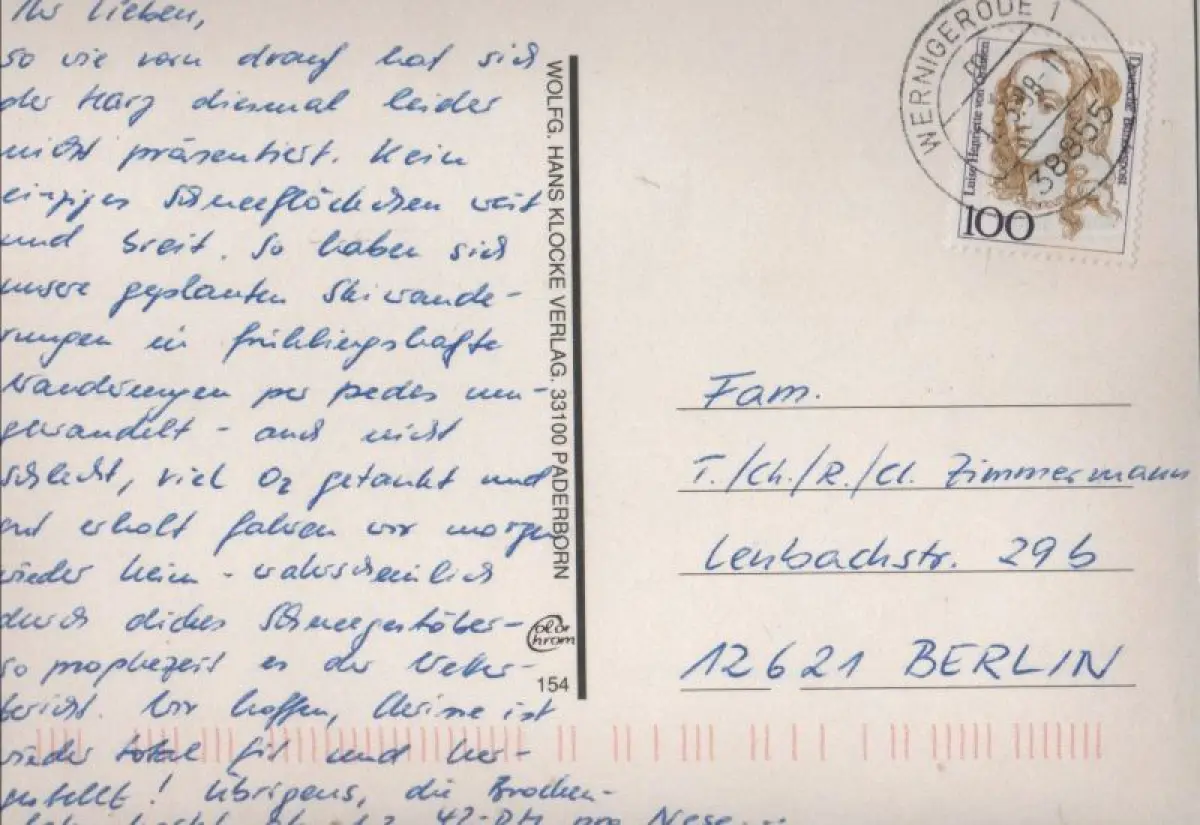 Ihr Lieben,
so wie vorn drauf hat sich
der Harz diesmal leider
nicht präsentiert. Kein
einziges Schneeglöckchen weit
und breit. So haben sich
unsere geplanten Skiwande-
rungen in frühlingshafte
Wanderungen per pedes um-
gewandelt - auch nicht
schlecht, viel O2 getankt und
gut erholt fahren wir morgen
wieder heim - wahrscheinlich
durch dickes Schneegestöber -
so prophezeit es der Wetter-
bericht. Wir hoffen, ist
wieder total fit und her-
gestellt! Übrigens, die Brocken-
42,-DM pro Nase
WOLFG. HANS KLOCKE VERLAG. 33100 PADERBORN
Color
chrom
154
WERNIGERODE 1
38855
Deutsche Bundespost
Luise Henriette von Oranien
100
Fam.
T./Ch./R./Cl. Zimmermann
Lenbachstr. 29b
12621 BERLIN